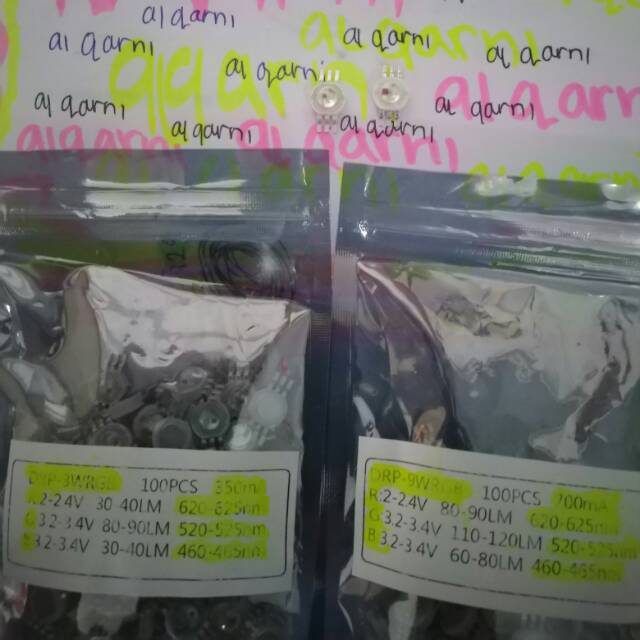 al qarni
al qarni
al qarni
al qarni
al qarni
al qarni
al qarni
al qarni
al qarni
al qarni
al qarni
al qarni
al qarni
al qarni
DRP-3WRGB 100PCS 350mA
R:2-2.4V 30-40LM 620-625nm
G:3.2-3.4V 80-90LM 520-525nm
B:3.2-3.4V 30-40LM 460-465nm
DRP-9WRGB 100PCS 700mA
R:2-2.4V 80-90LM 620-625nm
G:3.2-3.4V 110-120LM 520-525nm
B:3.2-3.4V 60-80LM 460-465nm